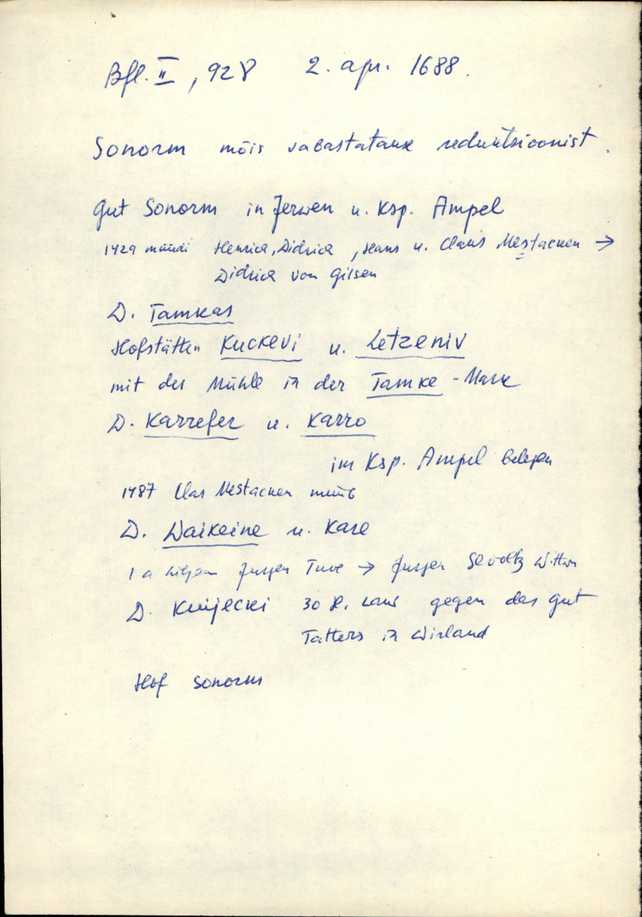 Bfl. II, 928 2. apr. 1688.
Sonorm mõis vabastatakse reduktsioonist.
Gut Sonorm in Jerwen u. Ksp. Ampel
1429 müüdi Henrich, Didrich, Hans u. Claus Mestacken →
Didrich von Gilsen
D. Tamkas
Hofstätten Kuckevi u. Letzeniv
mit der Mühle in der Tamke-Mark
D. Karrefer u. Karro
im Ksp. Ampel belegen
1487 Clas Mestacken müüb
D. Waikeine u. Kare
1 a hiljem Jurgen Tuve → Jurgen
D. Knijecki 30 H. Land gegen das Gut
Tatters in Wirland
Hof Sonorm